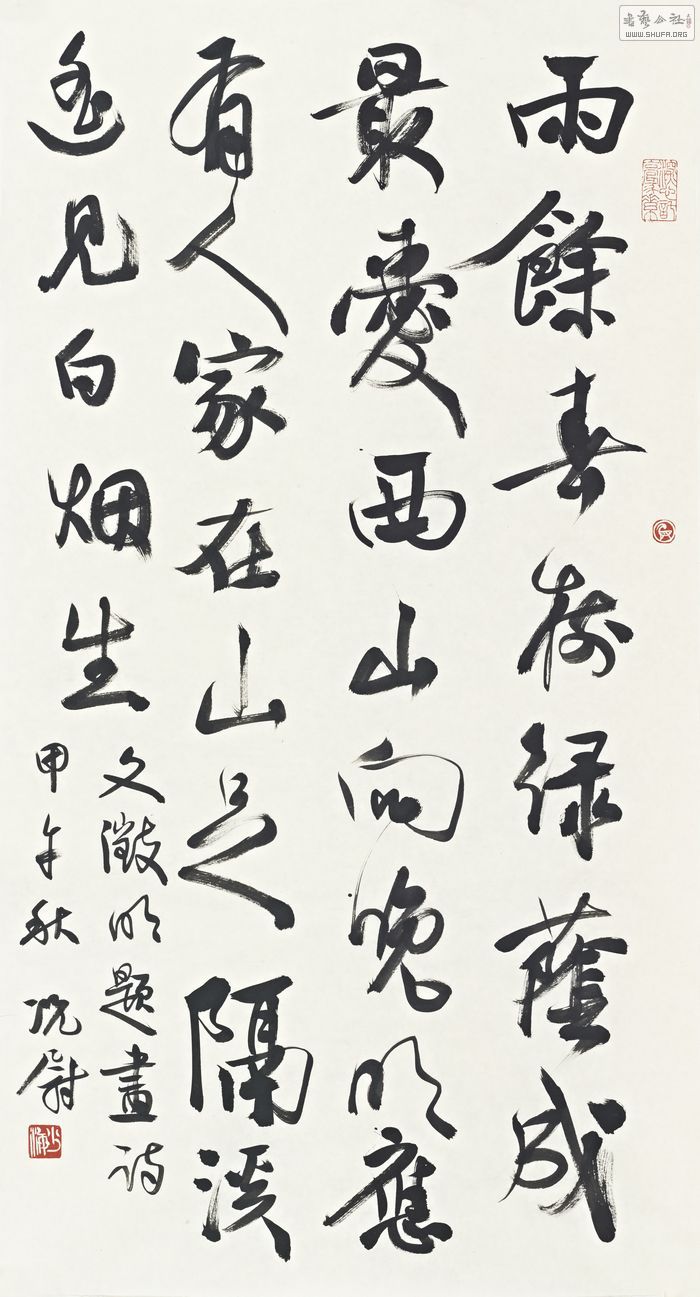 雨餘春樹綠蔭成
最愛西山向晚明應
有人家在山足隔溪
遥見白烟生
文徵明題畫詩
甲午秋 況尉
書藝公社
WWW.SHUFA.ORG